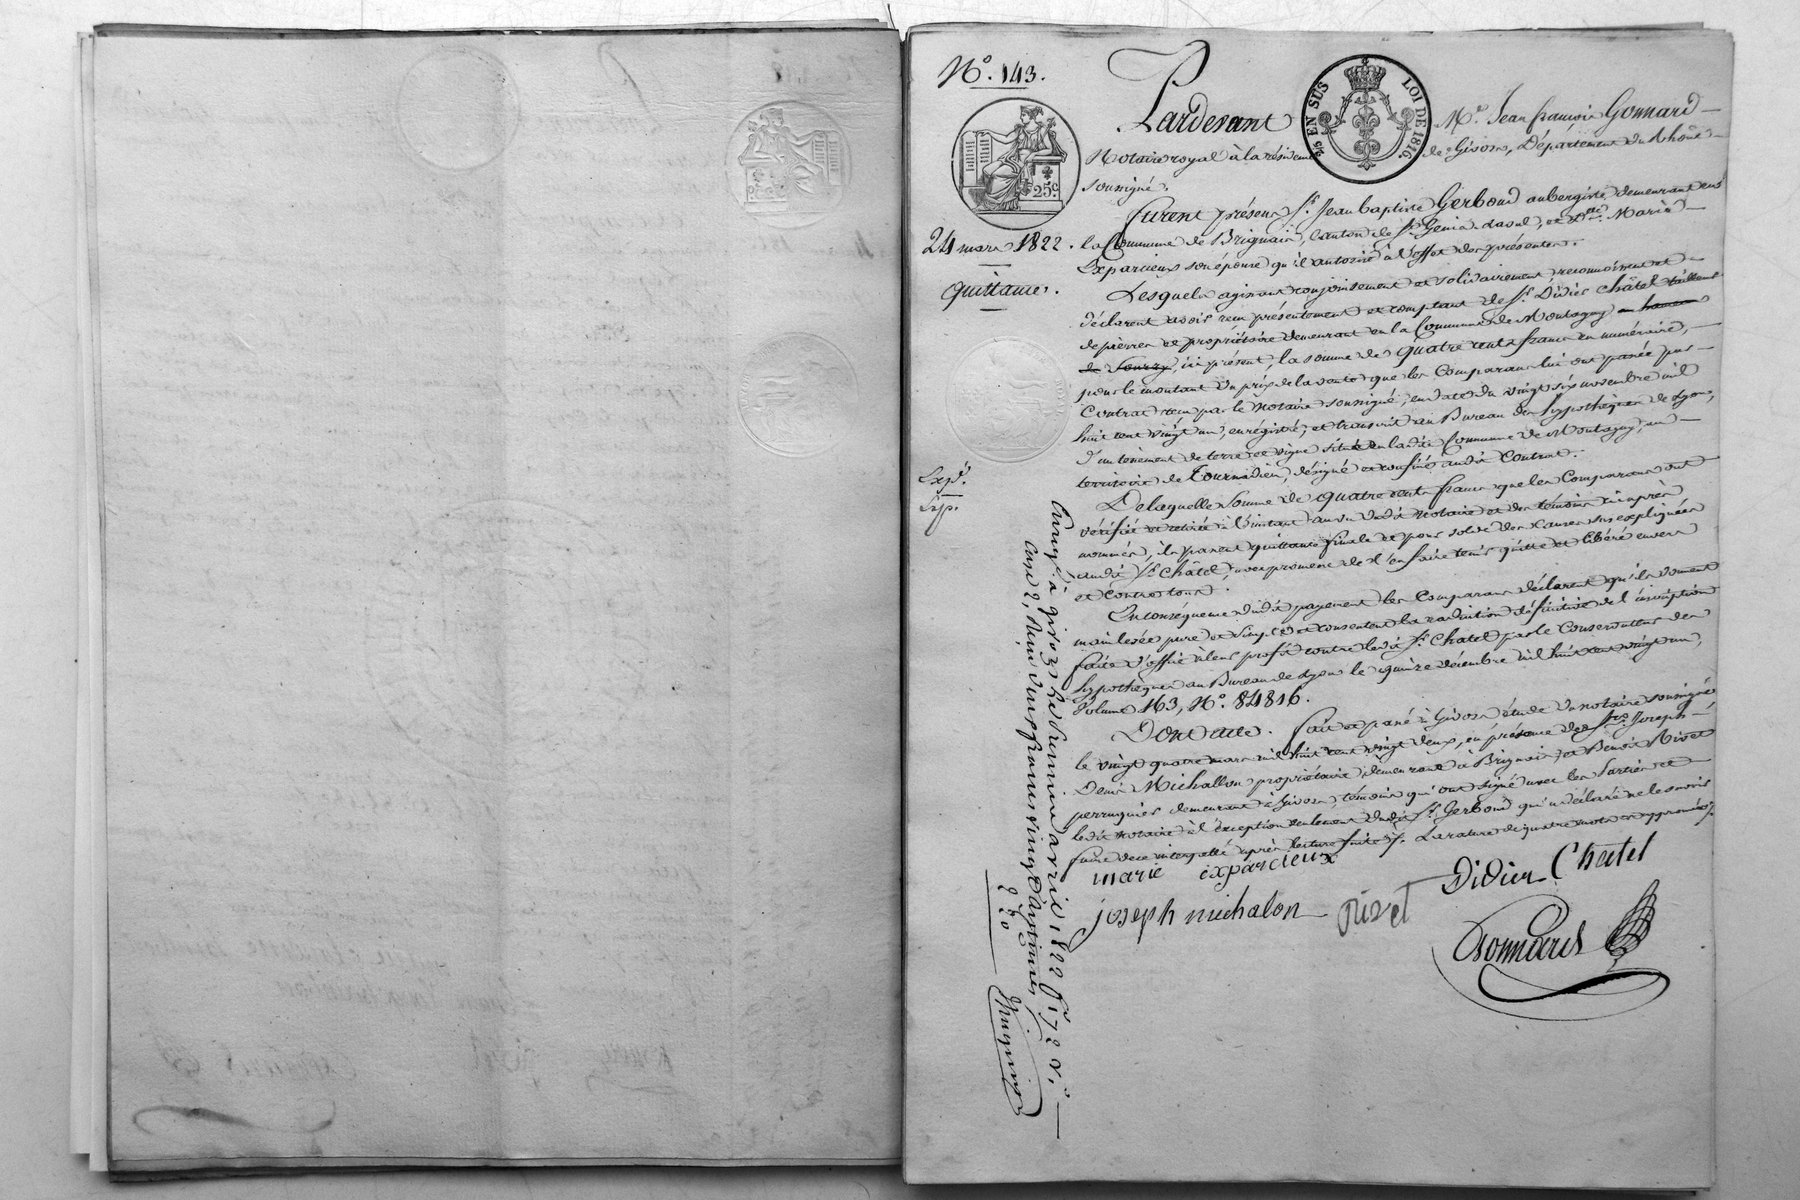 N.° 143.
Pardevant
2/5 EN SUS LOI DE 1816
25c.
M.e Jean françois Gonnard
Notaire royal à la résidence de Givors, Département du Rhône
soussigné.
24 mars 1822.
quittance.
Furent présens S.r Jean baptiste Gerboud aubergiste demeurant en
la Commune de Brignais, Canton de S.t Genis Laval, et D.lle Marie
Exparcieux son épouse qu'il autorise à l'effet des présentes.
Lesquels agissant conjointement et solidairement reconnoissent et
déclarent avoir reçu présentement et comptant de S.r Didier Châtel tailleur
de pierres et propriétaire demeurant en la Commune de Montagny au hameau
de Sourzy, ici présent, la somme de quatre cents francs en numéraire,
pour le montant du prix de la vente que les Comparans lui ont passée par
Contrat reçu par le notaire soussigné, en date du vingt six novembre mil
huit cent vingt un, enregistré, et transcrit au Bureau des hypothèques de Lyon,
d'un tènement de terre et vigne situé en ladite Commune de Montagny, au
territoire de Tournadieu, désigné et confiné audit Contrat.
Exp.é
Exp.
De laquelle somme de quatre cents francs que les Comparans ont
vérifié et retirée à l'instant au vu dudit notaire et des témoins ci après
nommés, ils passent quittance finale et pour solde des causes sus expliquées
audit S.r Châtel, avec promesse de l'en faire tenir quitte et libéré envers
et contre tous.
En conséquence dudit payement les Comparans déclarent qu'ils donnent
main levée pure et simple et consentent la radiation définitive de l'inscription
faite d'office à leur profit contre ledit S.r Chatel par le Conservateur des
hypothèques au Bureau de Lyon le quinze décembre mil huit cent vingt un,
Volume 163, N.° 84816.
Dont acte. fait et passé à Givors étude du notaire soussigné
le vingt quatre mars mil huit cent vingt deux, en présence des S.rs Joseph
Denis Michallon propriétaire demeurant à Brignais, et Benoit Rivet
perruquier demeurant à Givors, témoins qui ont signé avec les Parties et
ledit notaire à l'exception seulement dudit S.r Gerboud qui a déclaré ne le savoir
faire de ce interpellé après lecture faite. La rature de quatre mots est approuvée.
marie exparcieux
Didier Chatel
joseph michalon
Rivet
Gonnard
Enreg.é à givors le premier avril 1822 f.° 172 v.°
Case 2, Reçu deux francs vingt centimes
2 20